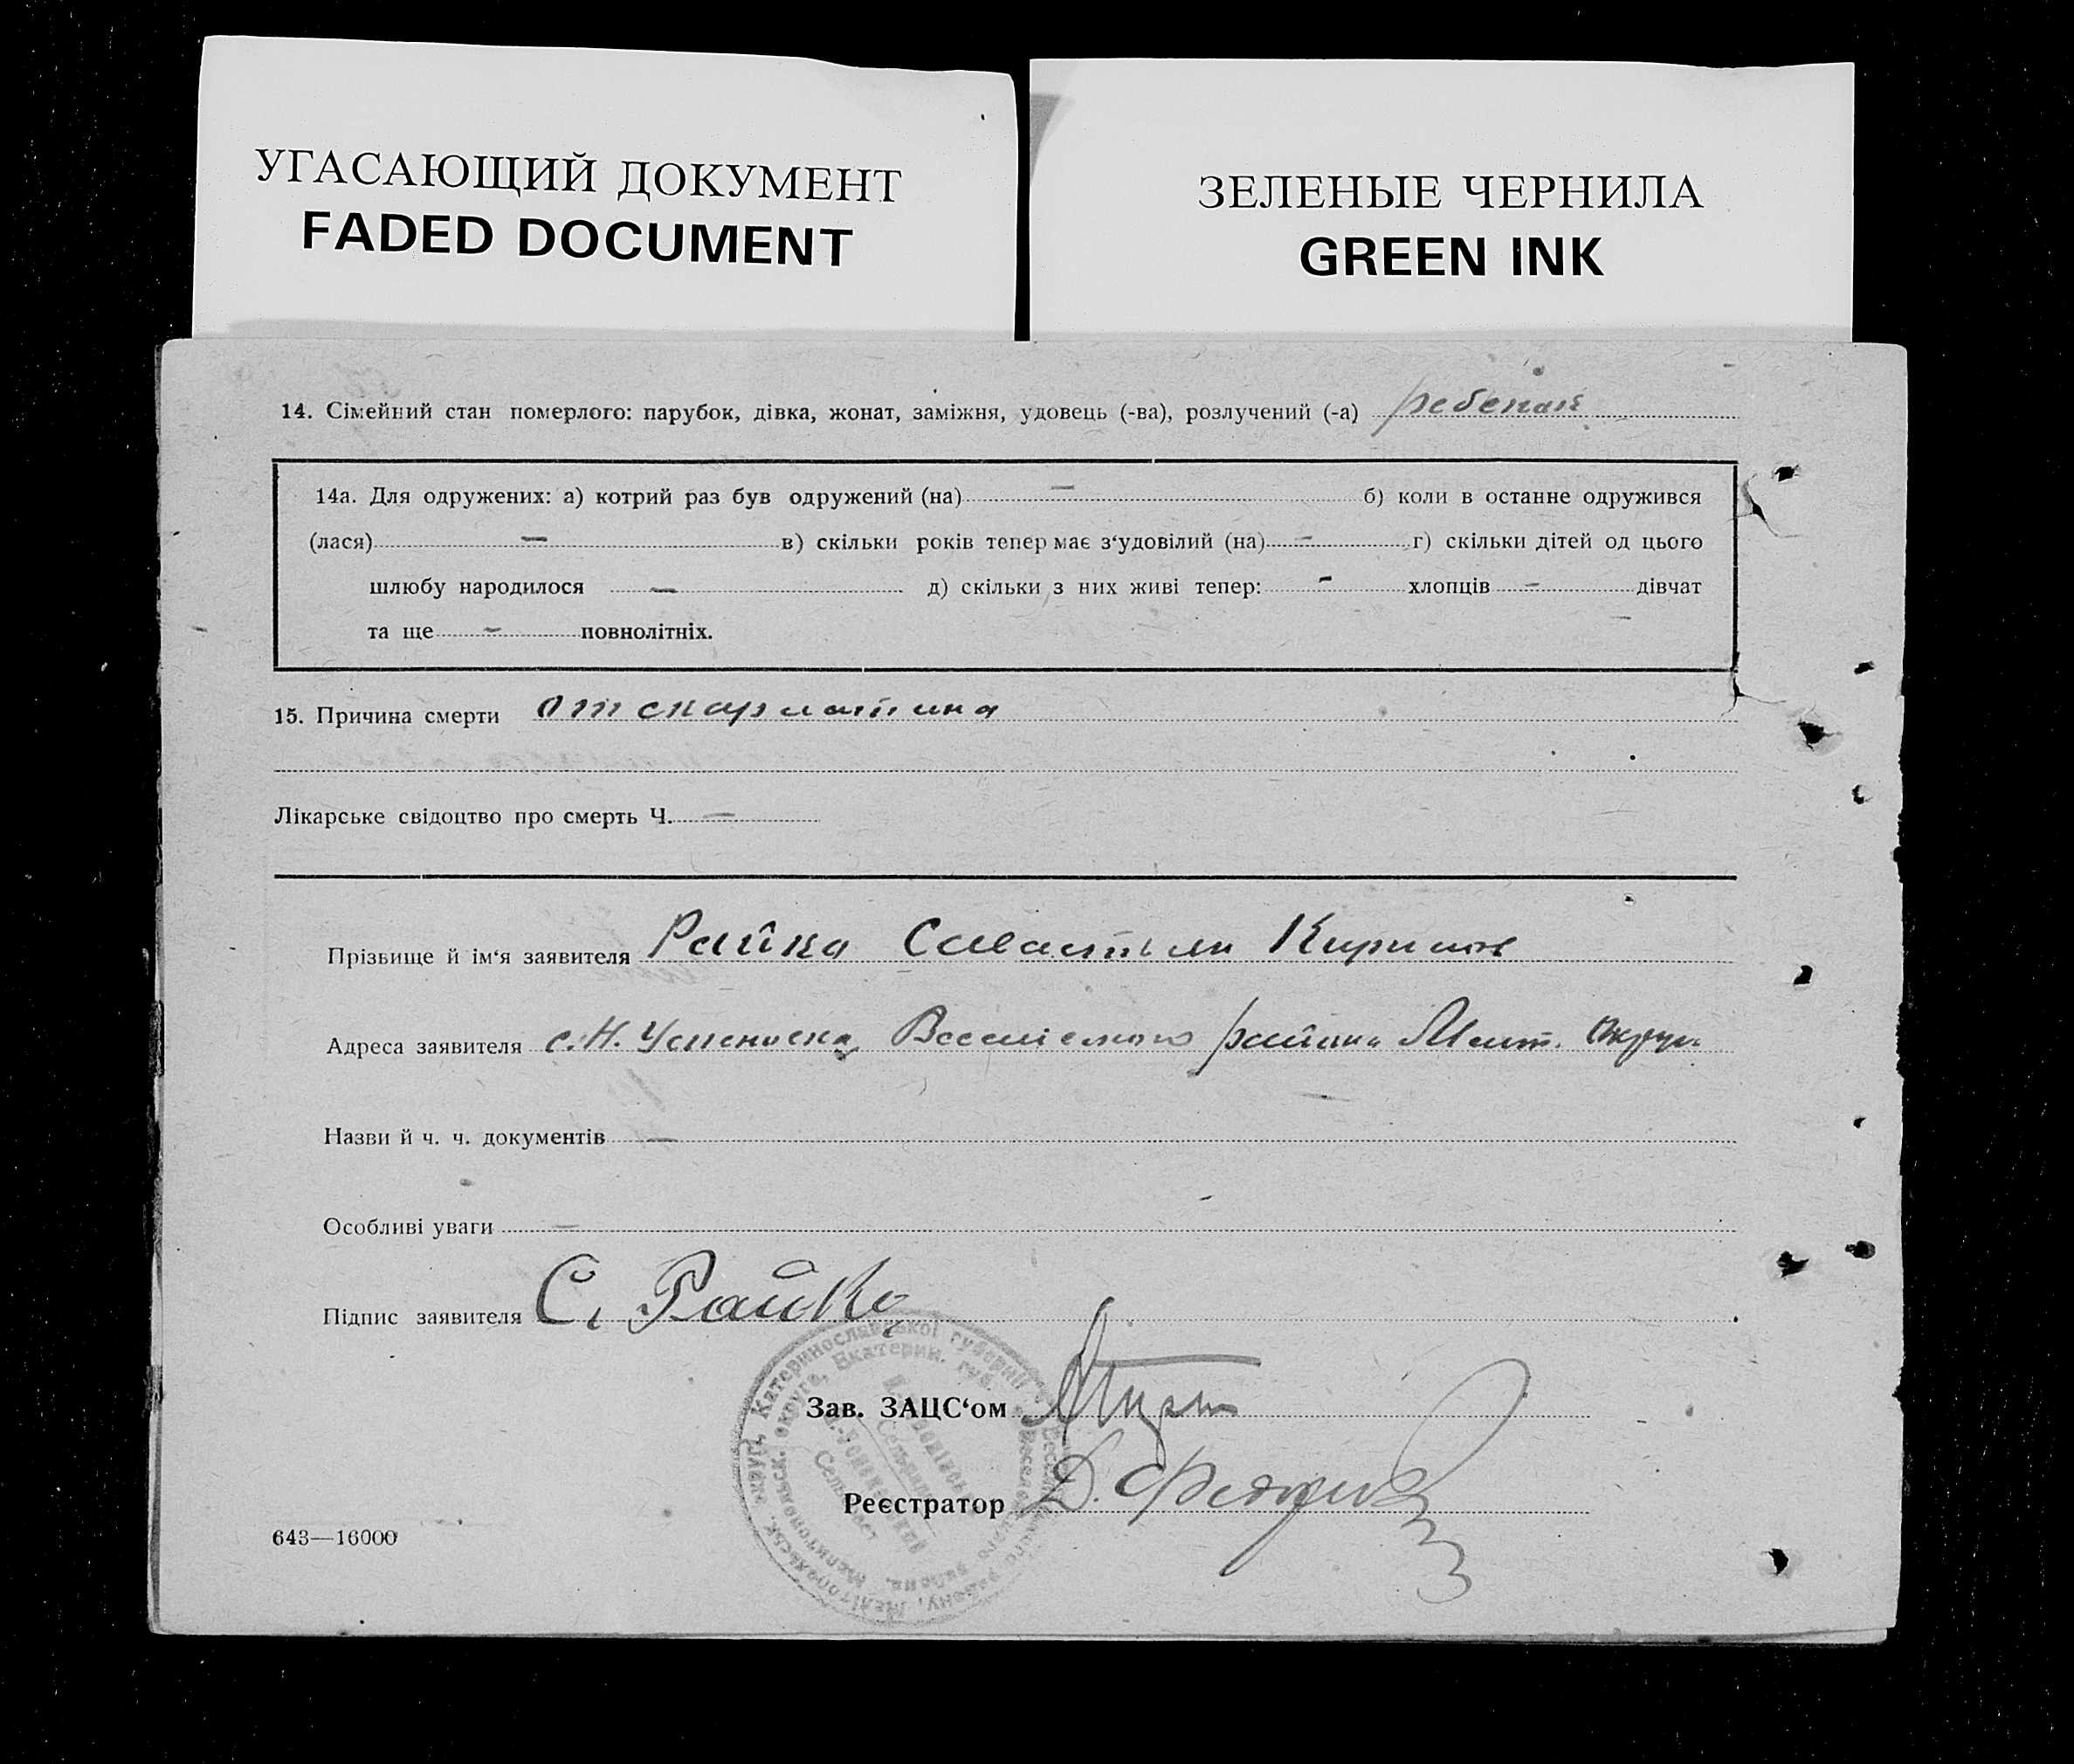 УГАСАЮЩИЙ ДОКУМЕНТ
FADED DOCUMENT
ЗЕЛЕНЫЕ ЧЕРНИЛА
GREEN INK
14. Сімейний стан померлого: парубок, дівка, жонат, заміжня, удовець (-ва), розлучений (-а) ребенак
14а. Для одружених: а) котрий раз був одружений (на) — б) коли в останнє одружився
(лася) — в) скільки років тепер має з‘удовілий (на) — г) скільки дітей од цього
шлюбу народилося — д) скільки з них живі тепер: - хлопців - дівчат
та ще - повнолітніх.
15. Причина смерти от скарлатина
Лікарське свідоцтво про смерть Ч. —
Прізвище й ім‘я заявителя Райка Савастьян Кирилов
Адреса заявителя с. Н. Успеновка района Мелит. Округа
Назви й ч. ч. документів —
Особливі уваги —
Підпис заявителя С. Райко
Зав. ЗАЦС‘ом
Реєстратор Д.
643—16000
Катеринославської губернії
Екатерин. губ.